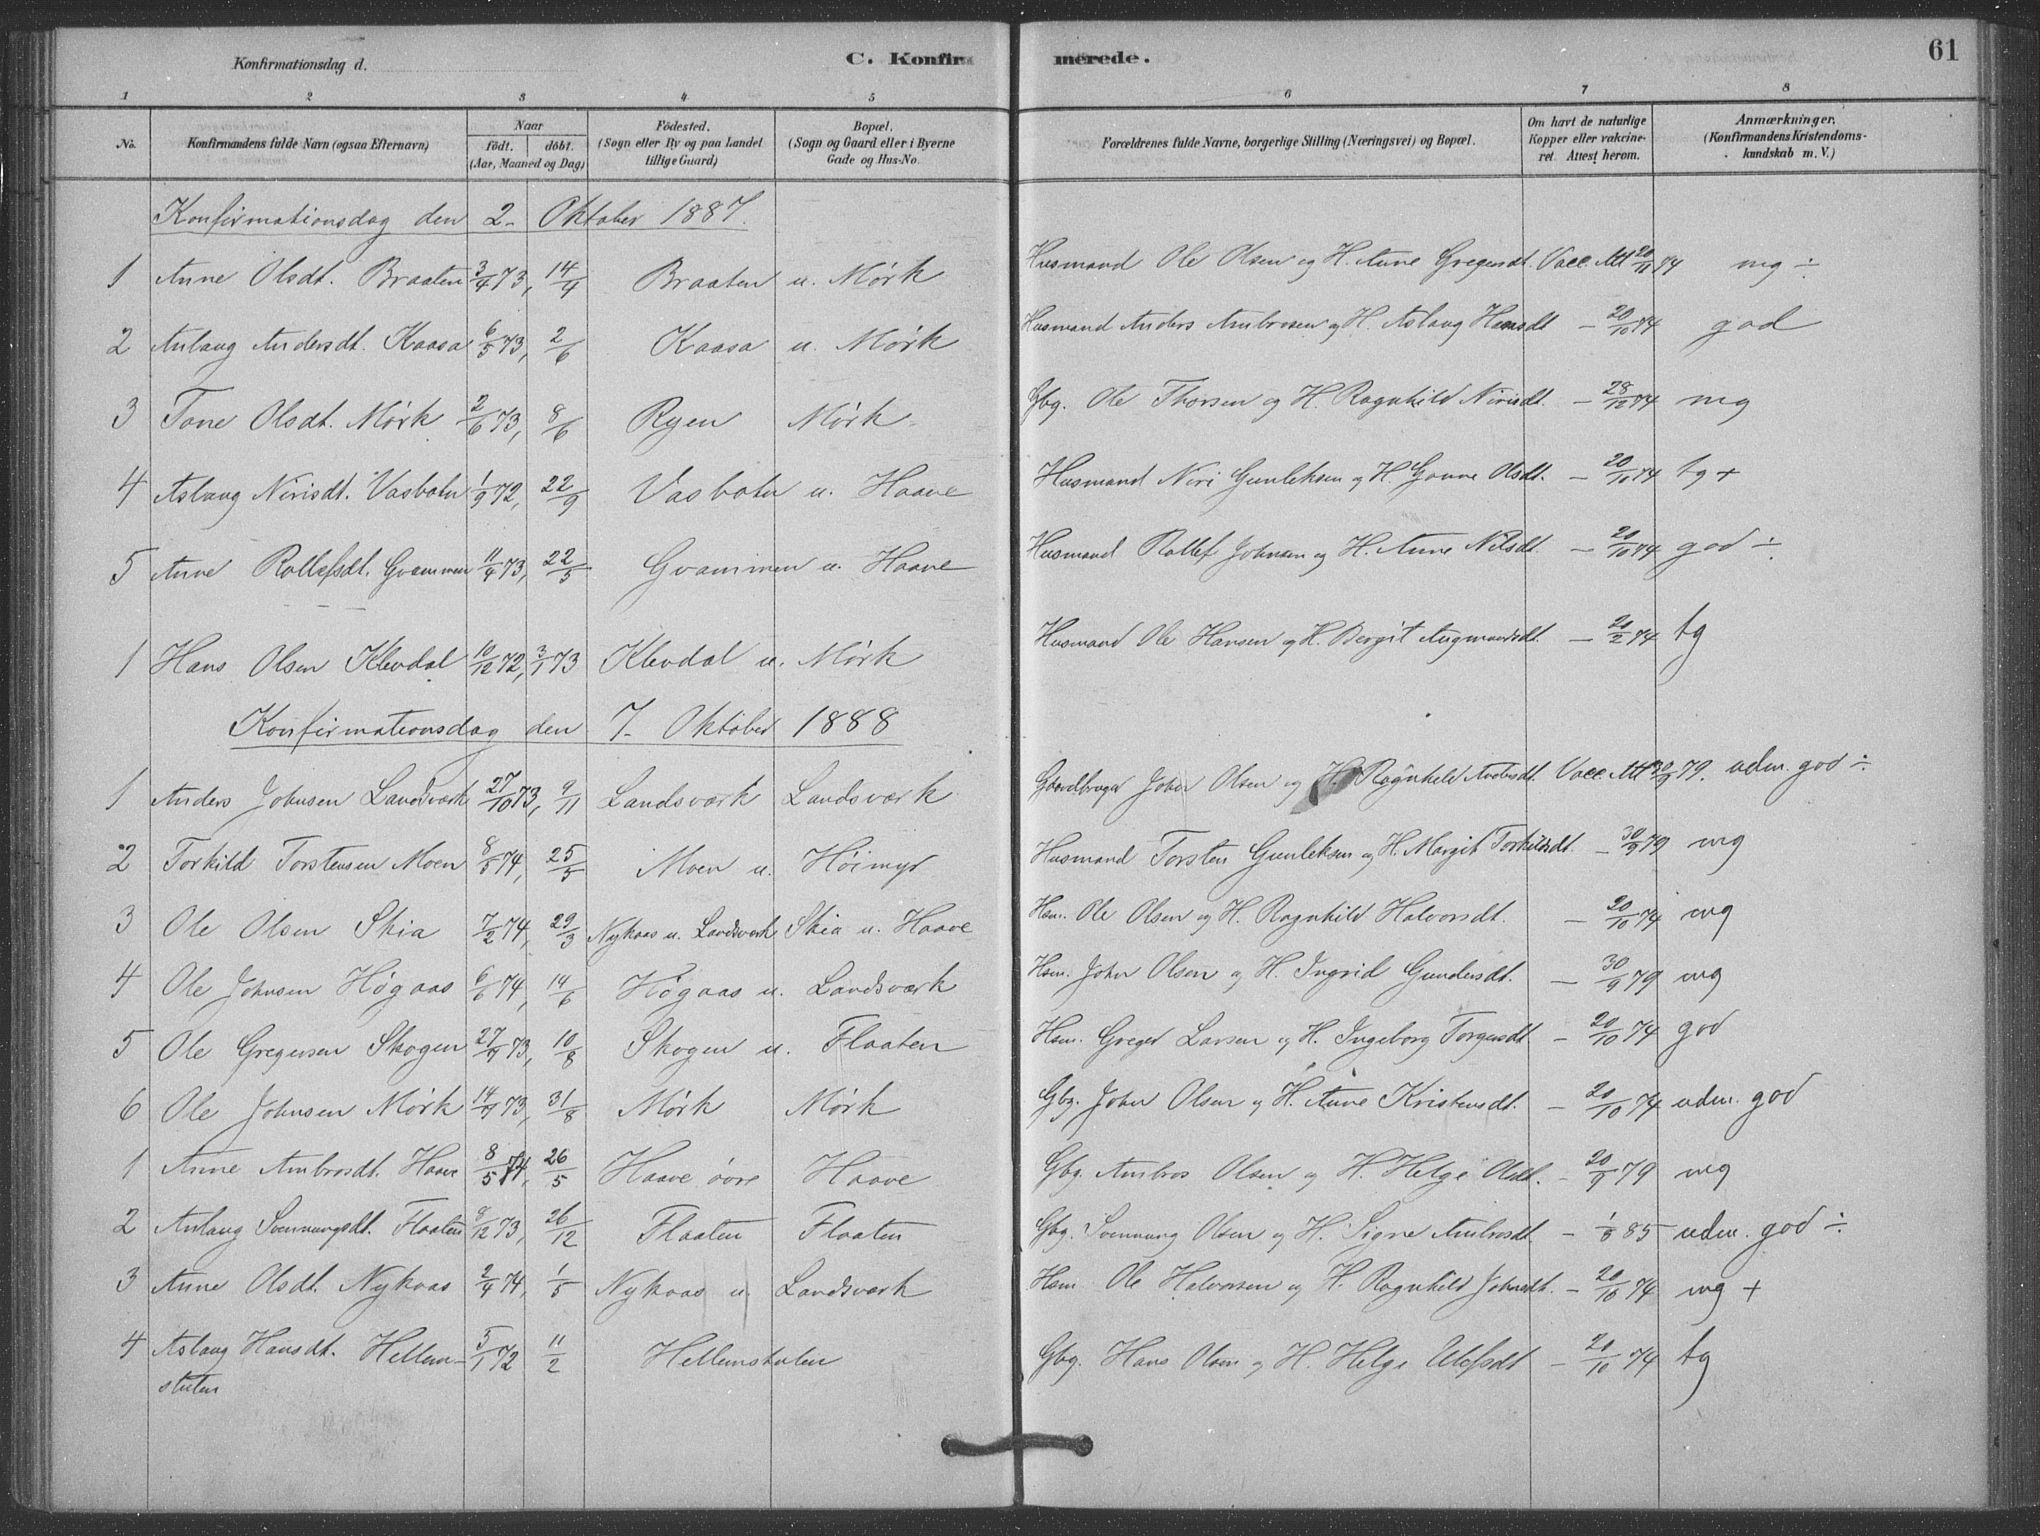 61
Konfirmationsdag d. C. Konfirmerede.
1 2 3 4 5 6 7 8
No. Konfirmandens fulde Navn (ogsaa Efternavn) Naar födt. döbt. (Aar, Maaned og Dag) Födested. (Sogn eller By og paa Landet tillige Gaard) Bopæl. (Sogn og Gaard eller i Byerne Gade og Hus-No. Forældrenes fulde Navne, borgerlige Stilling (Næringsvei) og Bopæl. Om havt de naturlige Kopper eller vakcineret. Attest herom. Anmærkninger. (Konfirmandens Kristendomskundskab m. V.)
Konfirmationsdag den 2- Oktober 1887.
1 Anne Olsdt. Braaten 3/4 73, 14/4 Braaten u. Mørk Husmand Ole Olsen og H. Anne Gregersdt. Vacc. Att 20/11 74 mg ÷
2 Aslaug Andersdt. Kaasa 6/5 73, 2/6 Kaasa u. Mørk Husmand Anders Ambrosen og H. Aslaug Hansdt — 20/10 74 god
3 Tone Olsdt. Mørk 2/6 73, 8/6 Ryen Mørk Gbg. Ole Thorsen og H. Ragnhild Nirisdt. — 28/12 74 mg
4 Aslaug Nirisdt. Vasboten 1/9 72, 22/9 Vasboten u. Haave Husmand Niri Gunleksen og H. Gonne Olsdt. — 20/10 74 tg +
5 Anne Rollefsdt. Gvammen 11/4 73, 22/5 Gvammen u. Haave Husmand Rollef Johnsen og H. Anne Nilsdt. — 20/10 74 god ÷
1 Hans Olsen Klevdal 10/12 72, 3/1 73 Klevdal u. Mørk Husmand Ole Hansen og H. Bergit Augmundsdt. — 20/2 74 tg
Konfirmationsdag den 7- Oktober 1888
1 Anders Johnsen Landsværk 27/10 73, 9/11 Landsværk Landsværk Gaardbruger John Olsen og H. Ragnhild Vacc. Att 30/9 79. udm. god ÷
2 Torkild Torstensen Moen 8/5 74, 25/5 Moen u. Höimyr Husmand Torsten Gunleksen og H. Margit Torkildsdt — 30/9 79 mg
3 Ole Olsen Skia 7/2 74, 29/3 Nykaas u. Landsværk Skia u. Haave Hsm. Ole Olsen og H. Ragnhild Halvorsdt. — 20/10 74 mg
4 Ole Johnsen Høgaas 6/6 74, 14/6 Høgaas u. Landsværk Hsm. John Olsen og H. Ingrid Gundersdt. — 30/9 79 mg
5 Ole Gregersen Skogen 27/7 73, 10/8 Skogen u. Flaaten Hsm. Greger Larsen og H. Ingeborg Torgersdt — 20/10 74 god
6 Ole Johnsen Mørk 14/7 73, 31/8 Mørk Mørk Gbg. John Olsen og H. Anne Kristensdt. — 20/10 74 udm. god
1 Anne Ambrosdt. Haave 8/5 74, 26/5 Haave övre Haave Gbg. Ambros Olsen og H. Helge Olsdt. — 20/9 79 mg
2 Aslaug Svennungsdt. Flaaten 8/12 73, 26/12 Flaaten Flaaten Gbg. Svennung Olsen og H. Signe Ambrosdt. — 1/8 85 udm. god ÷
3 Anne Olsdt. Nykaas 2/4 74, 1/5 Nykaas u. Landsværk Hsm Ole Halvorsen og H. Ragnhild Johnsdt. — 20/10 74 mg +
4 Aslaug Hansdt. Hellem- 5/1 72 11/2 Hellemstulen Gbg. Hans Olsen og H. Helge Ulefsdt — 20/10 74 tg
stulen